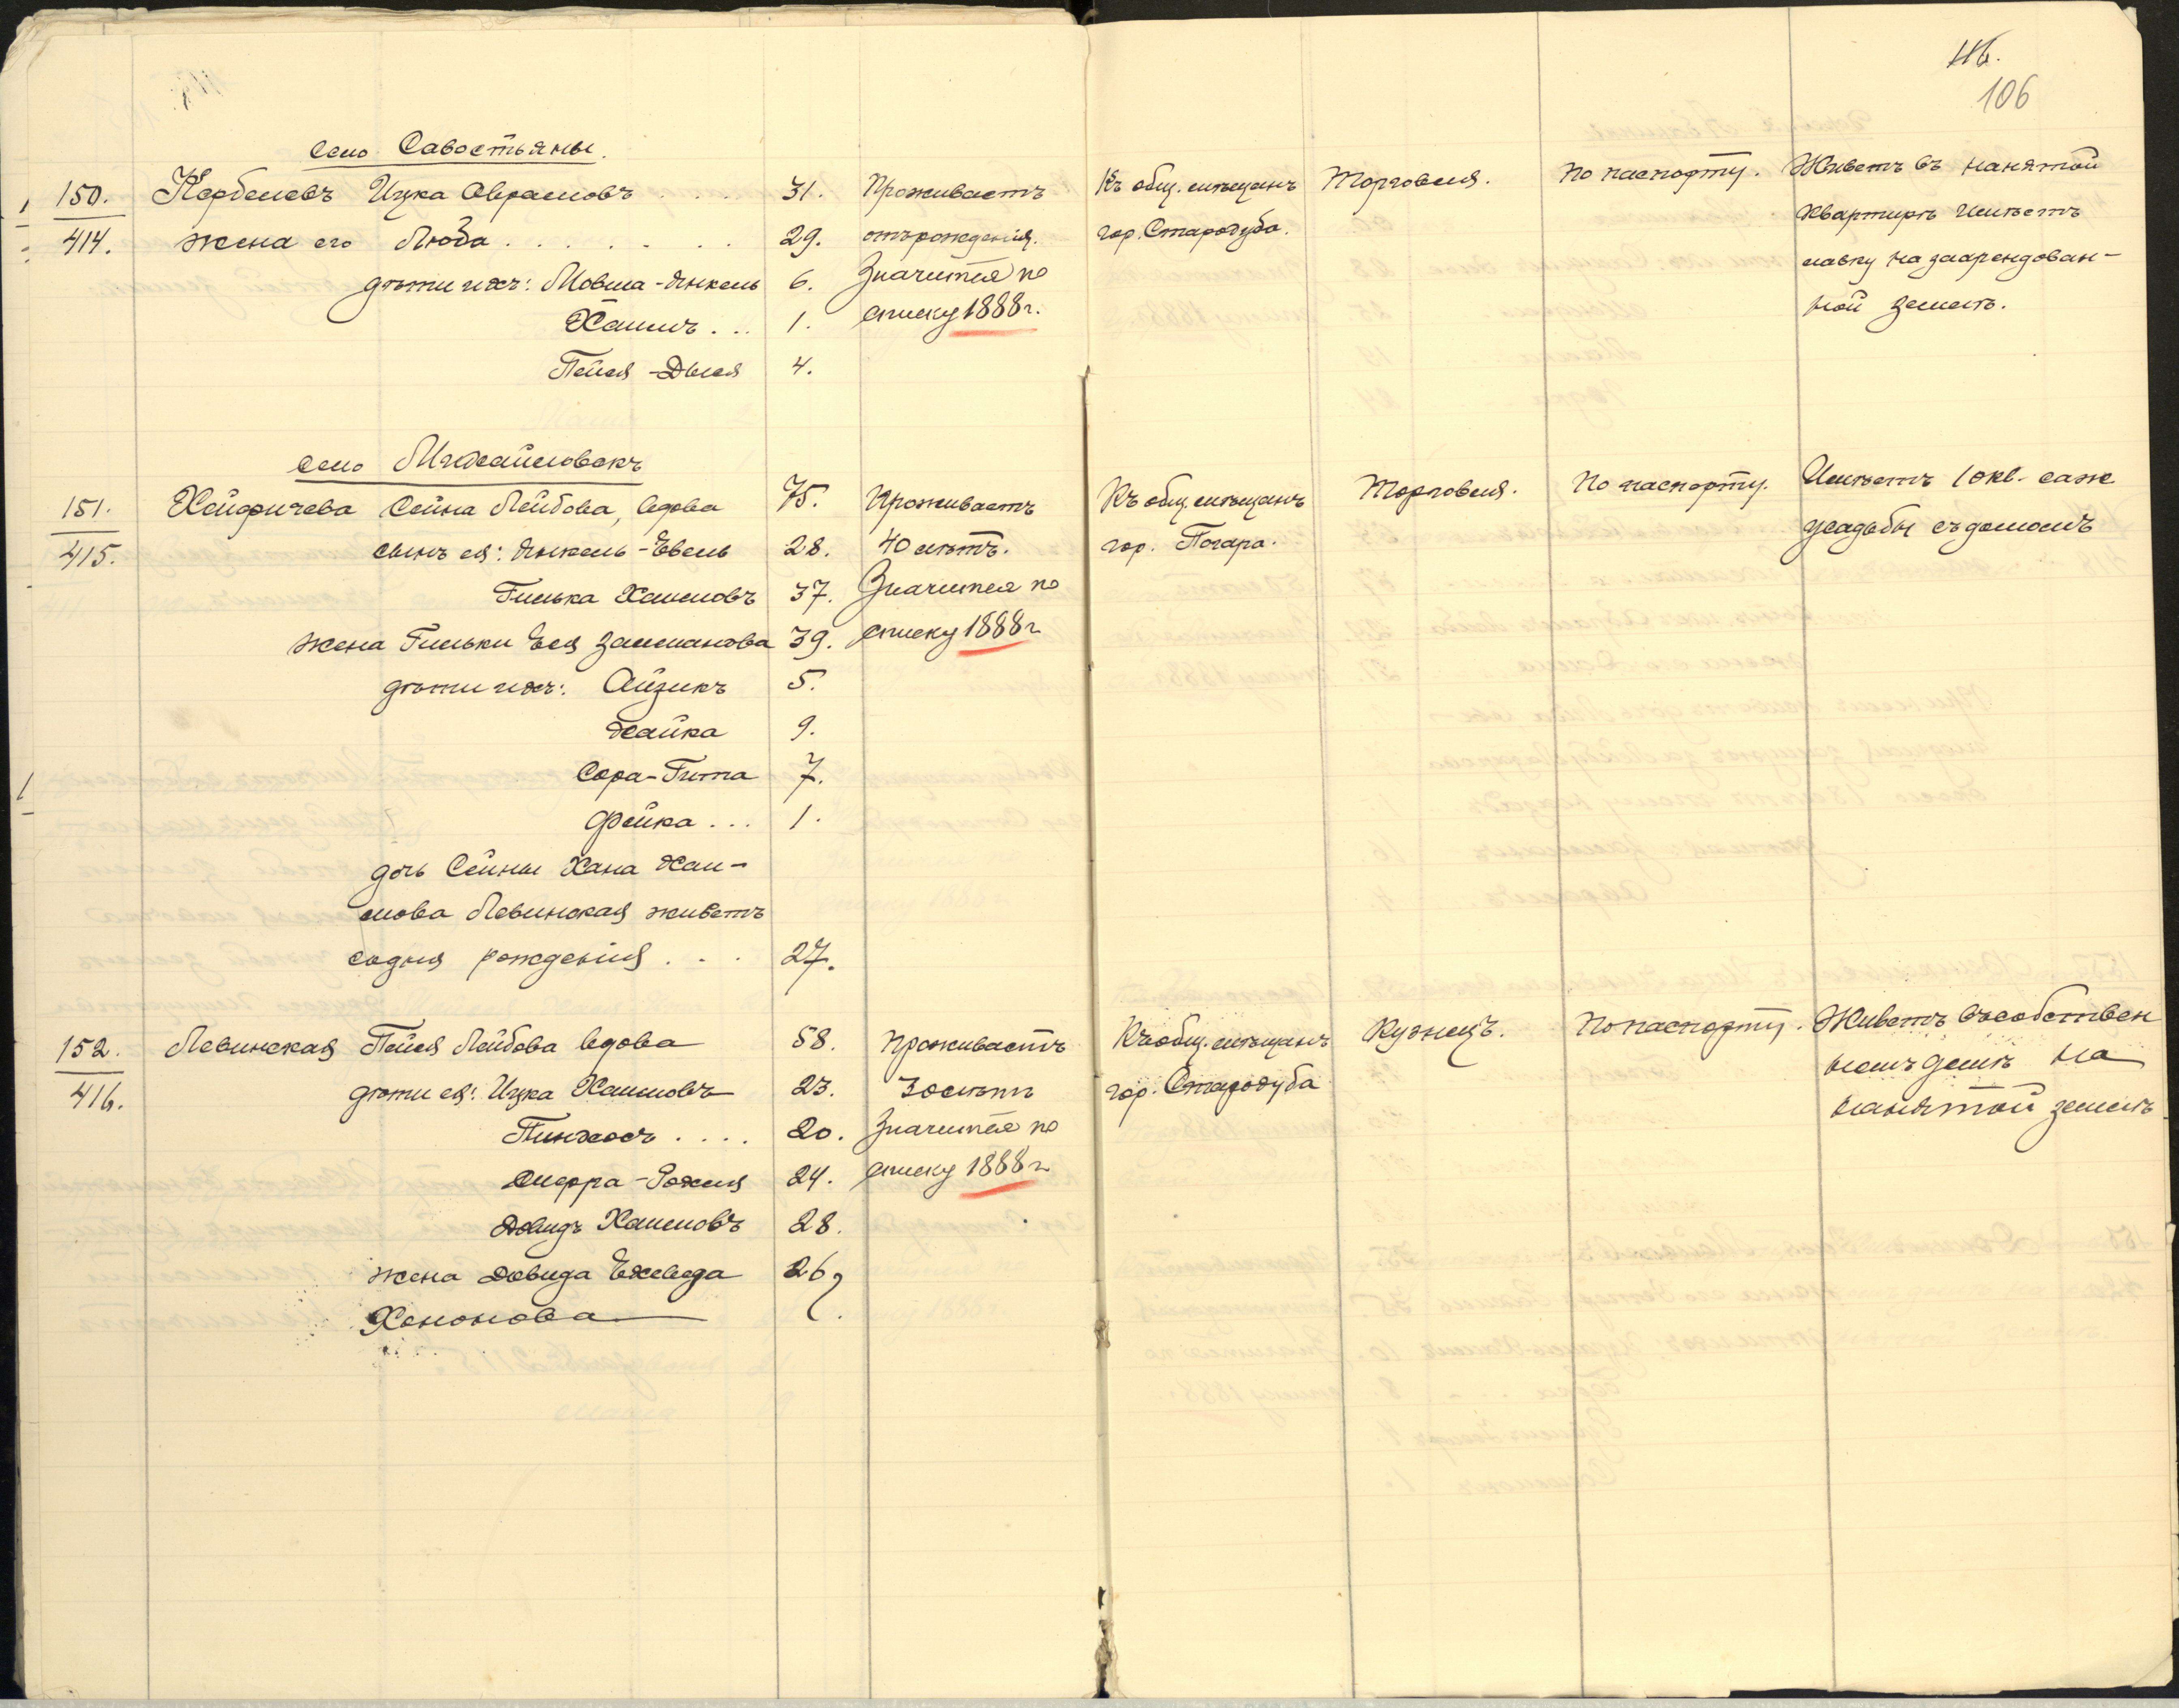 116.
106
село Савостьяны.
150. Кербелевъ Ицка Аврамовъ . . . 31. Проживаетъ Къ общ. мѣщанъ Торговля. По паспорту. Живетъ въ нанятой
414. жена его Люба . . . . . . . 29. отъ рожденія. гор. Стародуба. квартирѣ имѣетъ
дѣти ихъ: Мовша-Янкель 6. Значится по лавку на заарендован-
Хаимъ . . . 1. списку 1888 г. ной землѣ.
Пейся-Дыся 4.
село Михайловскъ
151. Хейфичева Сейна Лейбова, вдова 75. Проживаетъ Къ общ. мѣщанъ Торговля. По паспорту. Имѣетъ 10 кв. саж
415. сынъ ея: Янкель-Евель 28. 40 лѣтъ. гор. Погара. усадьбы съ домомъ
Гилька Хаимовъ 37. Значится по
жена Гильки Еся Залманова 39. списку 1888 г
дѣти ихъ: Айзикъ 5.
Хайка 9.
Сора-Гита 7.
Фейка . . . 1.
дочь Сейны Хана Хаи-
мова Левинская живетъ
со дня рожденія . . . 27.
152. Левинская Пейся Лейбова вдова 58. Проживаетъ Къ общ. мѣщанъ Кузнецъ. По паспорту. Живетъ въ собствен
416. дѣти ея: Ицка Хаимовъ 23. 30 лѣтъ гор. Стародуба номъ домѣ на
Пинхосъ . . . . 20. Значится по нанятой землѣ
-Рохля 24. списку 1888 г
Довидъ Хаимовъ 28.
жена Довида Ехеведа 26
Хононова